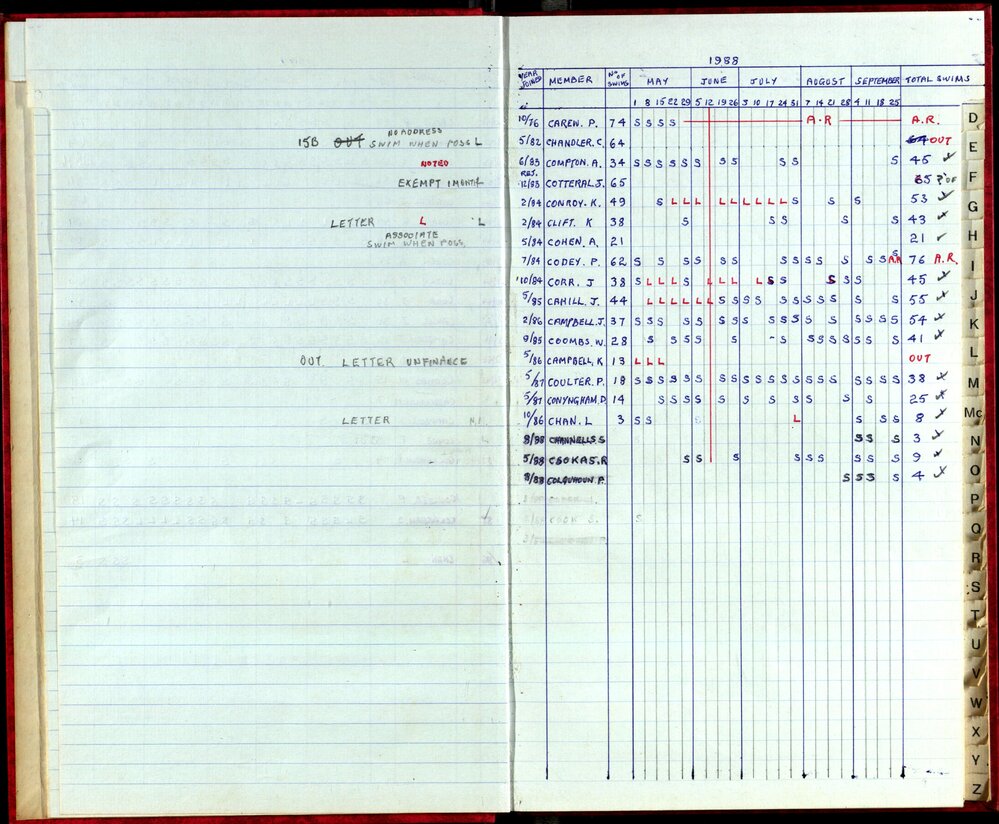 NO ADDRESS
15B OUT SWIM WHEN POSS L
NOTED
EXEMPT 1 MONTH
LETTER L L
ASSOCIATE
SWIM WHEN POSS.
OUT. LETTER UNFINANCE
LETTER
1988
YEAR JOINED MEMBER NO OF SWIMS MAY JUNE JULY AUGUST SEPTEMBER TOTAL SWIMS
1 8 15 22 29 5 12 19 26 3 10 17 24 31 7 14 21 28 4 11 18 25
10/76 CAREW. P. 74 S S S S A-R A.R.
5/82 CHANDLER. C. 64 64 OUT
6/83 COMPTON. A. 34 S S S S S S S S S S S 45
RES.
12/83 COTTERAL. J. 65 65 ? OF
2/84 CONROY. K. 49 S L L L L L L L L L S S S 53
2/84 CLIFT. K 38 S S S S S 43
5/84 COHEN. A. 21 21
7/84 CODEY. P. 62 S S S S S S S S S S S S S S A.R 76 A.R.
10/84 CORR. J 38 S L L L S L L L L S S S S S 45
5/85 CAHILL. J. 44 L L L L L L S S S S S S S S S S S 55
2/86 CAMPBELL. J. 37 S S S S S S S S S S S S S S S S S 54
9/85 COOMBS. W. 28 S S S S S S S S S S S S S 41
5/86 CAMPBELL. K 13 L L L OUT
5/87 COULTER. P. 18 S S S S S S S S S S S S S S S S S S S S 38
5/87 CONYNGHAM. D. 14 S S S S S S S S S S S 25
10/86 CHAN. L 3 S S L S S S 8
8/88 CHANNELLS S S S S 3
5/88 CSOKAS. R S S S S S S S S S 9
8/88 COLQUHOUN. P. S S S S 4
COOK S. S
D
E
F
G
H
I
J
K
L
M
Mc
N
O
P
Q
R
S
T
U
V
W
X
Y
Z